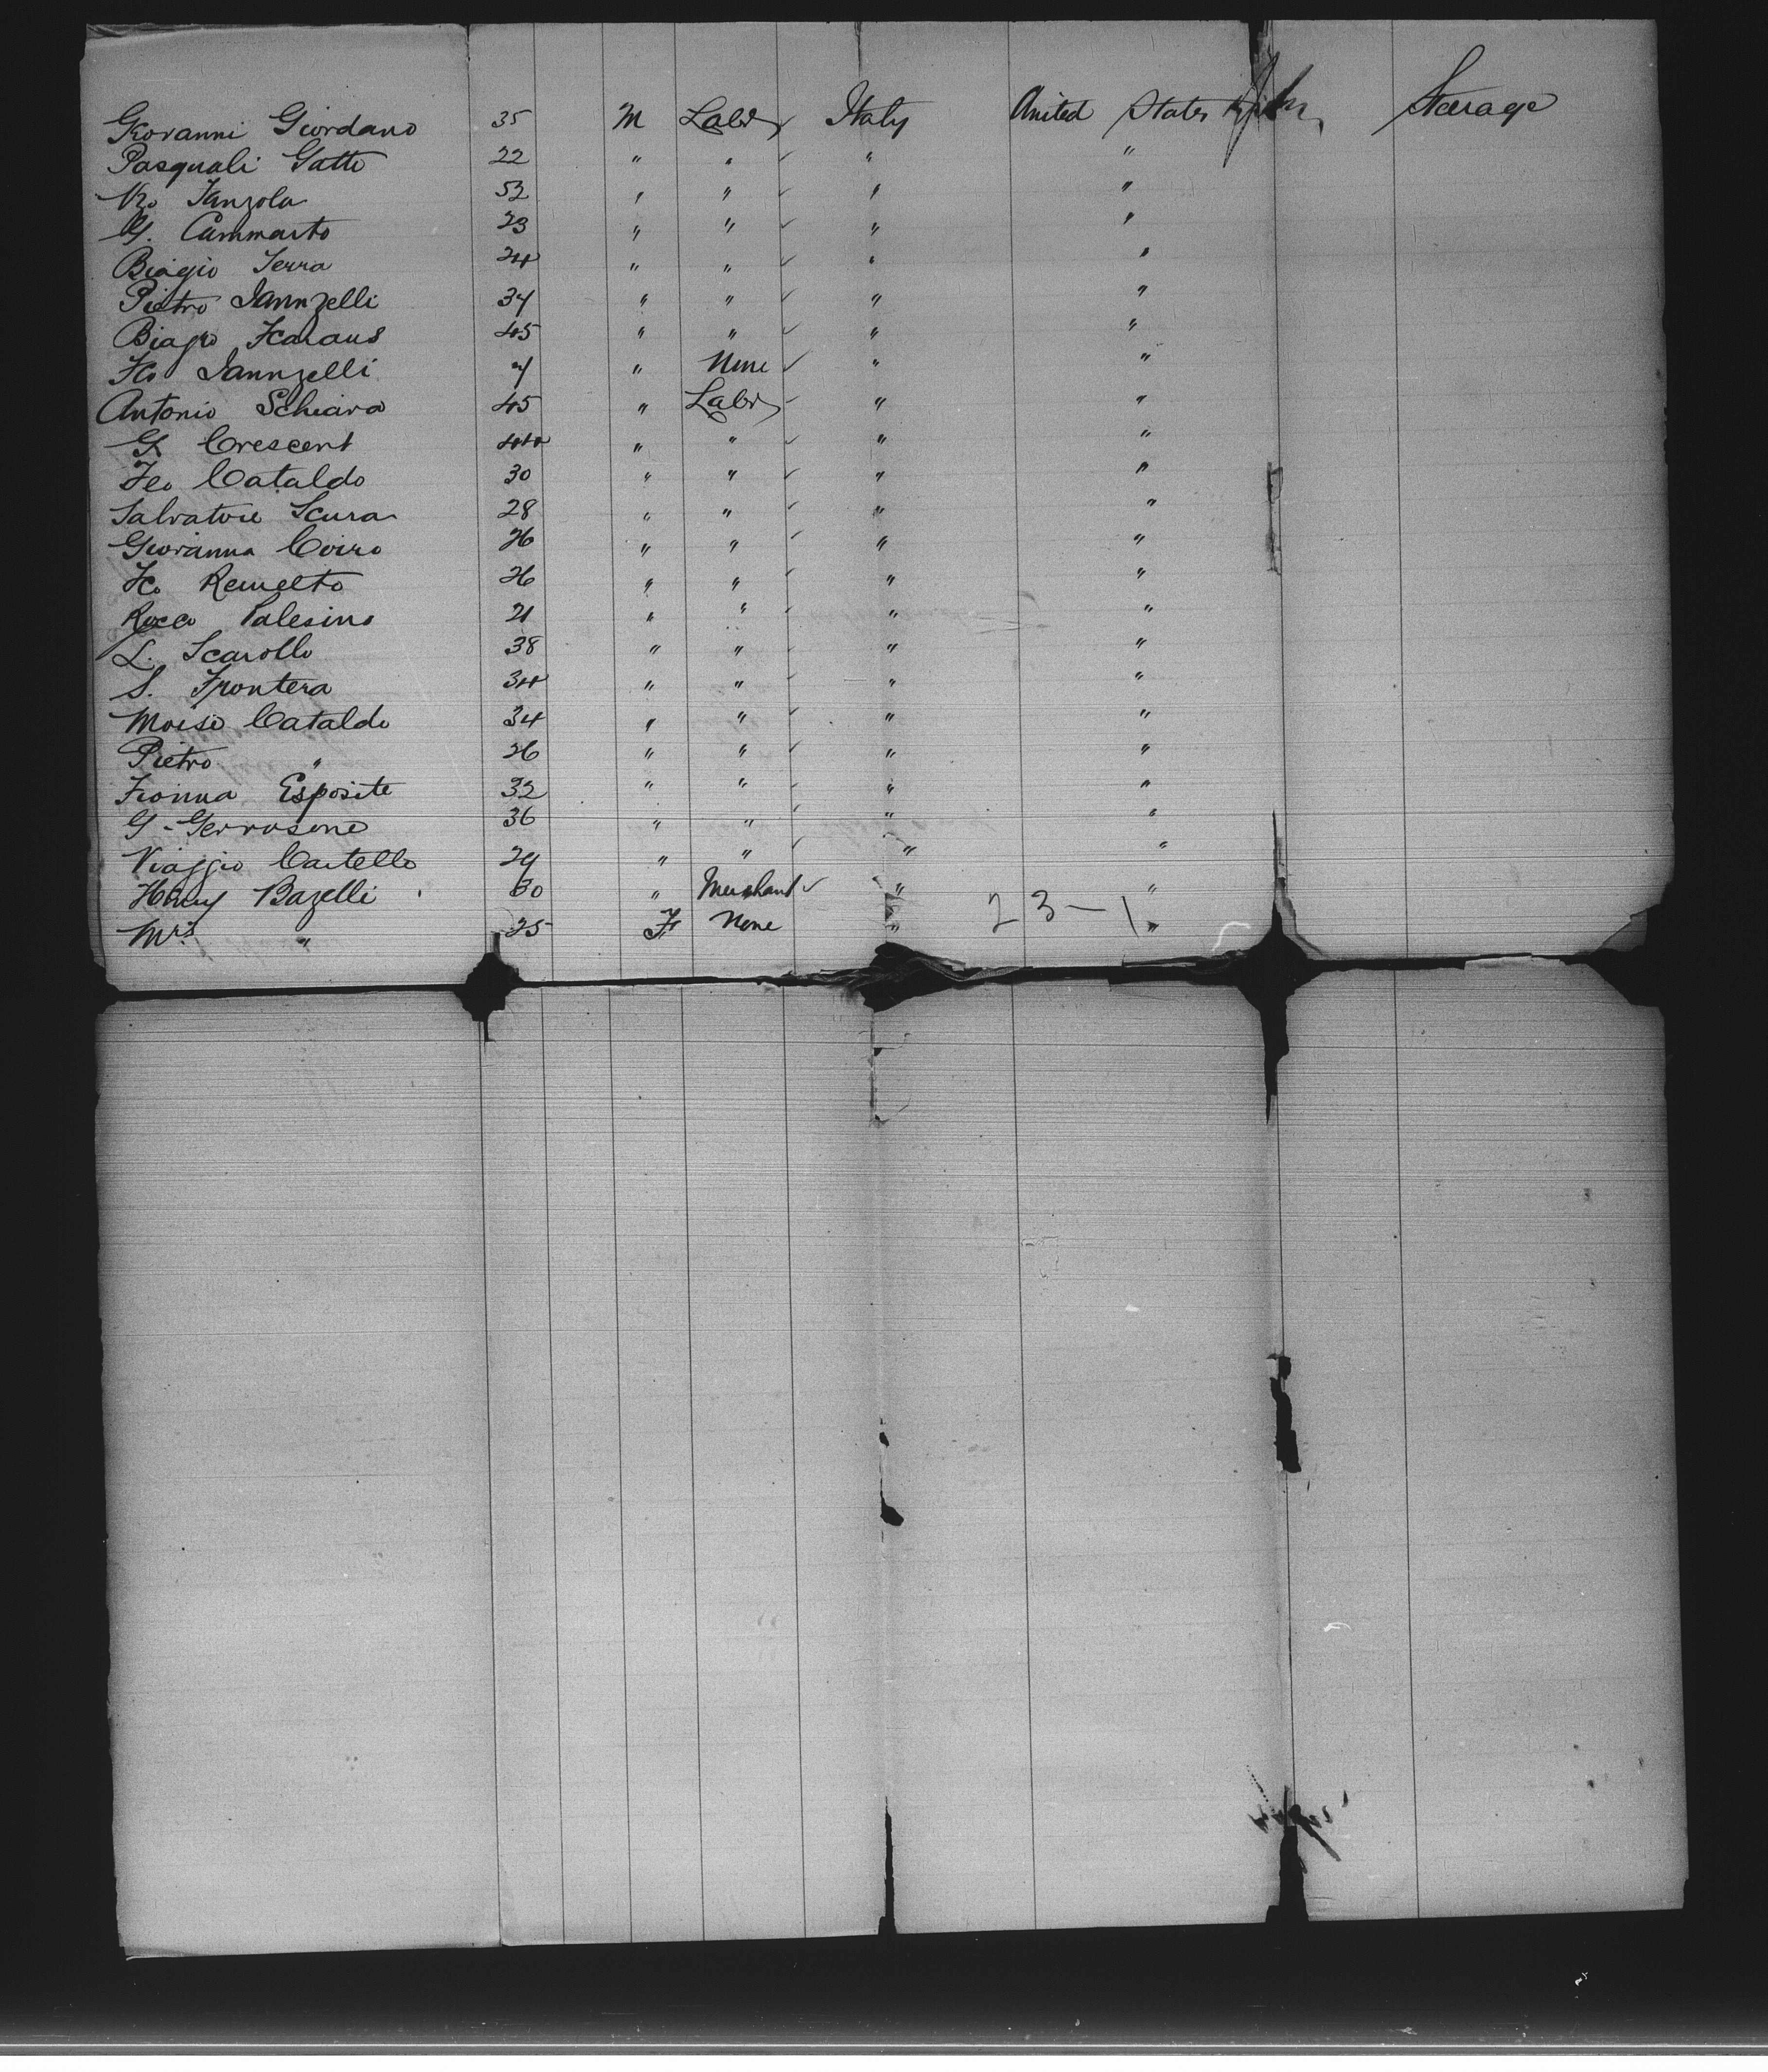 Giovanni Giordano 35 M Labr ✓ Italy United States Steerage
Pasquali Gatto 22 " " ✓ " "
Vzo Janzola 52 " " ✓ " "
G. Cammarto 23 " " ✓ " "
Biagio Serra 24 " " ✓ " "
Pietro Iannzelli 34 " " ✓ " "
Biagio 45 " " ✓ " "
Fco Iannzelli 7 " None ✓ " "
Antonio Schiava 45 " Labr ✓ " "
G Crescent 44 " " ✓ " "
Feo Cataldo 30 " " ✓ " "
Salvatore Scura 28 " " ✓ " "
Giovanna Coiro 26 " " ✓ " "
Fco 26 " " ✓ " "
Rocco Palesino 21 " " ✓ " "
L. Scarollo 38 " " ✓ " "
S. Frontera 34 " " ✓ " "
Moise Cataldo 34 " " ✓ " "
Pietro " 26 " " ✓ " "
Esposite 32 " " ✓ " "
G - Gerrasone 36 " " ✓ " "
Viaggio Cartello 29 " " ✓ " "
Henry Bazelli 30 " Merchant ✓ " "
Mrs " 25 F None " 23 - 1 "